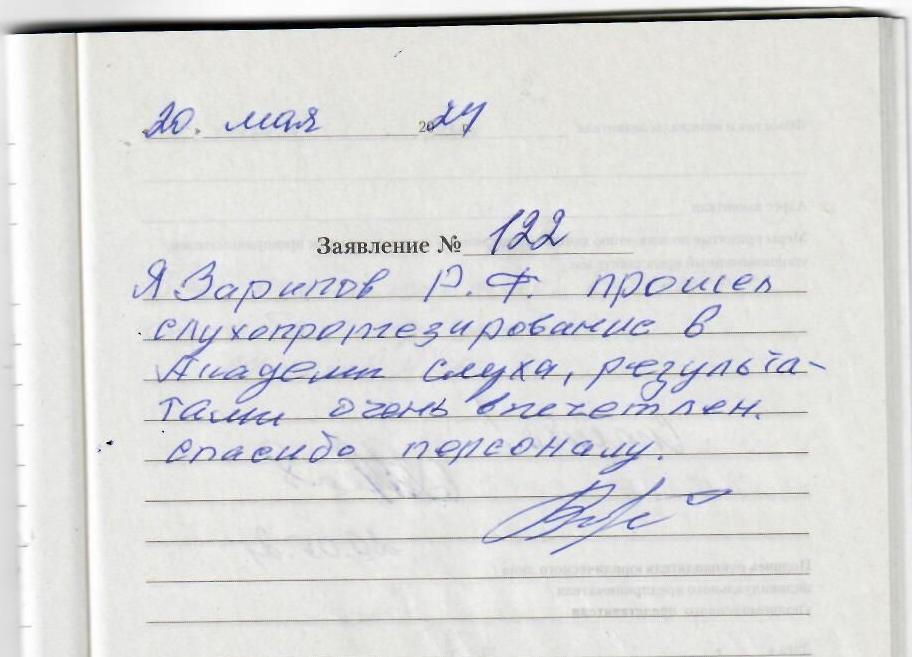 20 мая 2024
Заявление № 122
Я Зарипов Р.Ф. прошел
слухопротезирование в
Академи слуха, результа-
тами очень впечетлен.
спасибо персоналу.